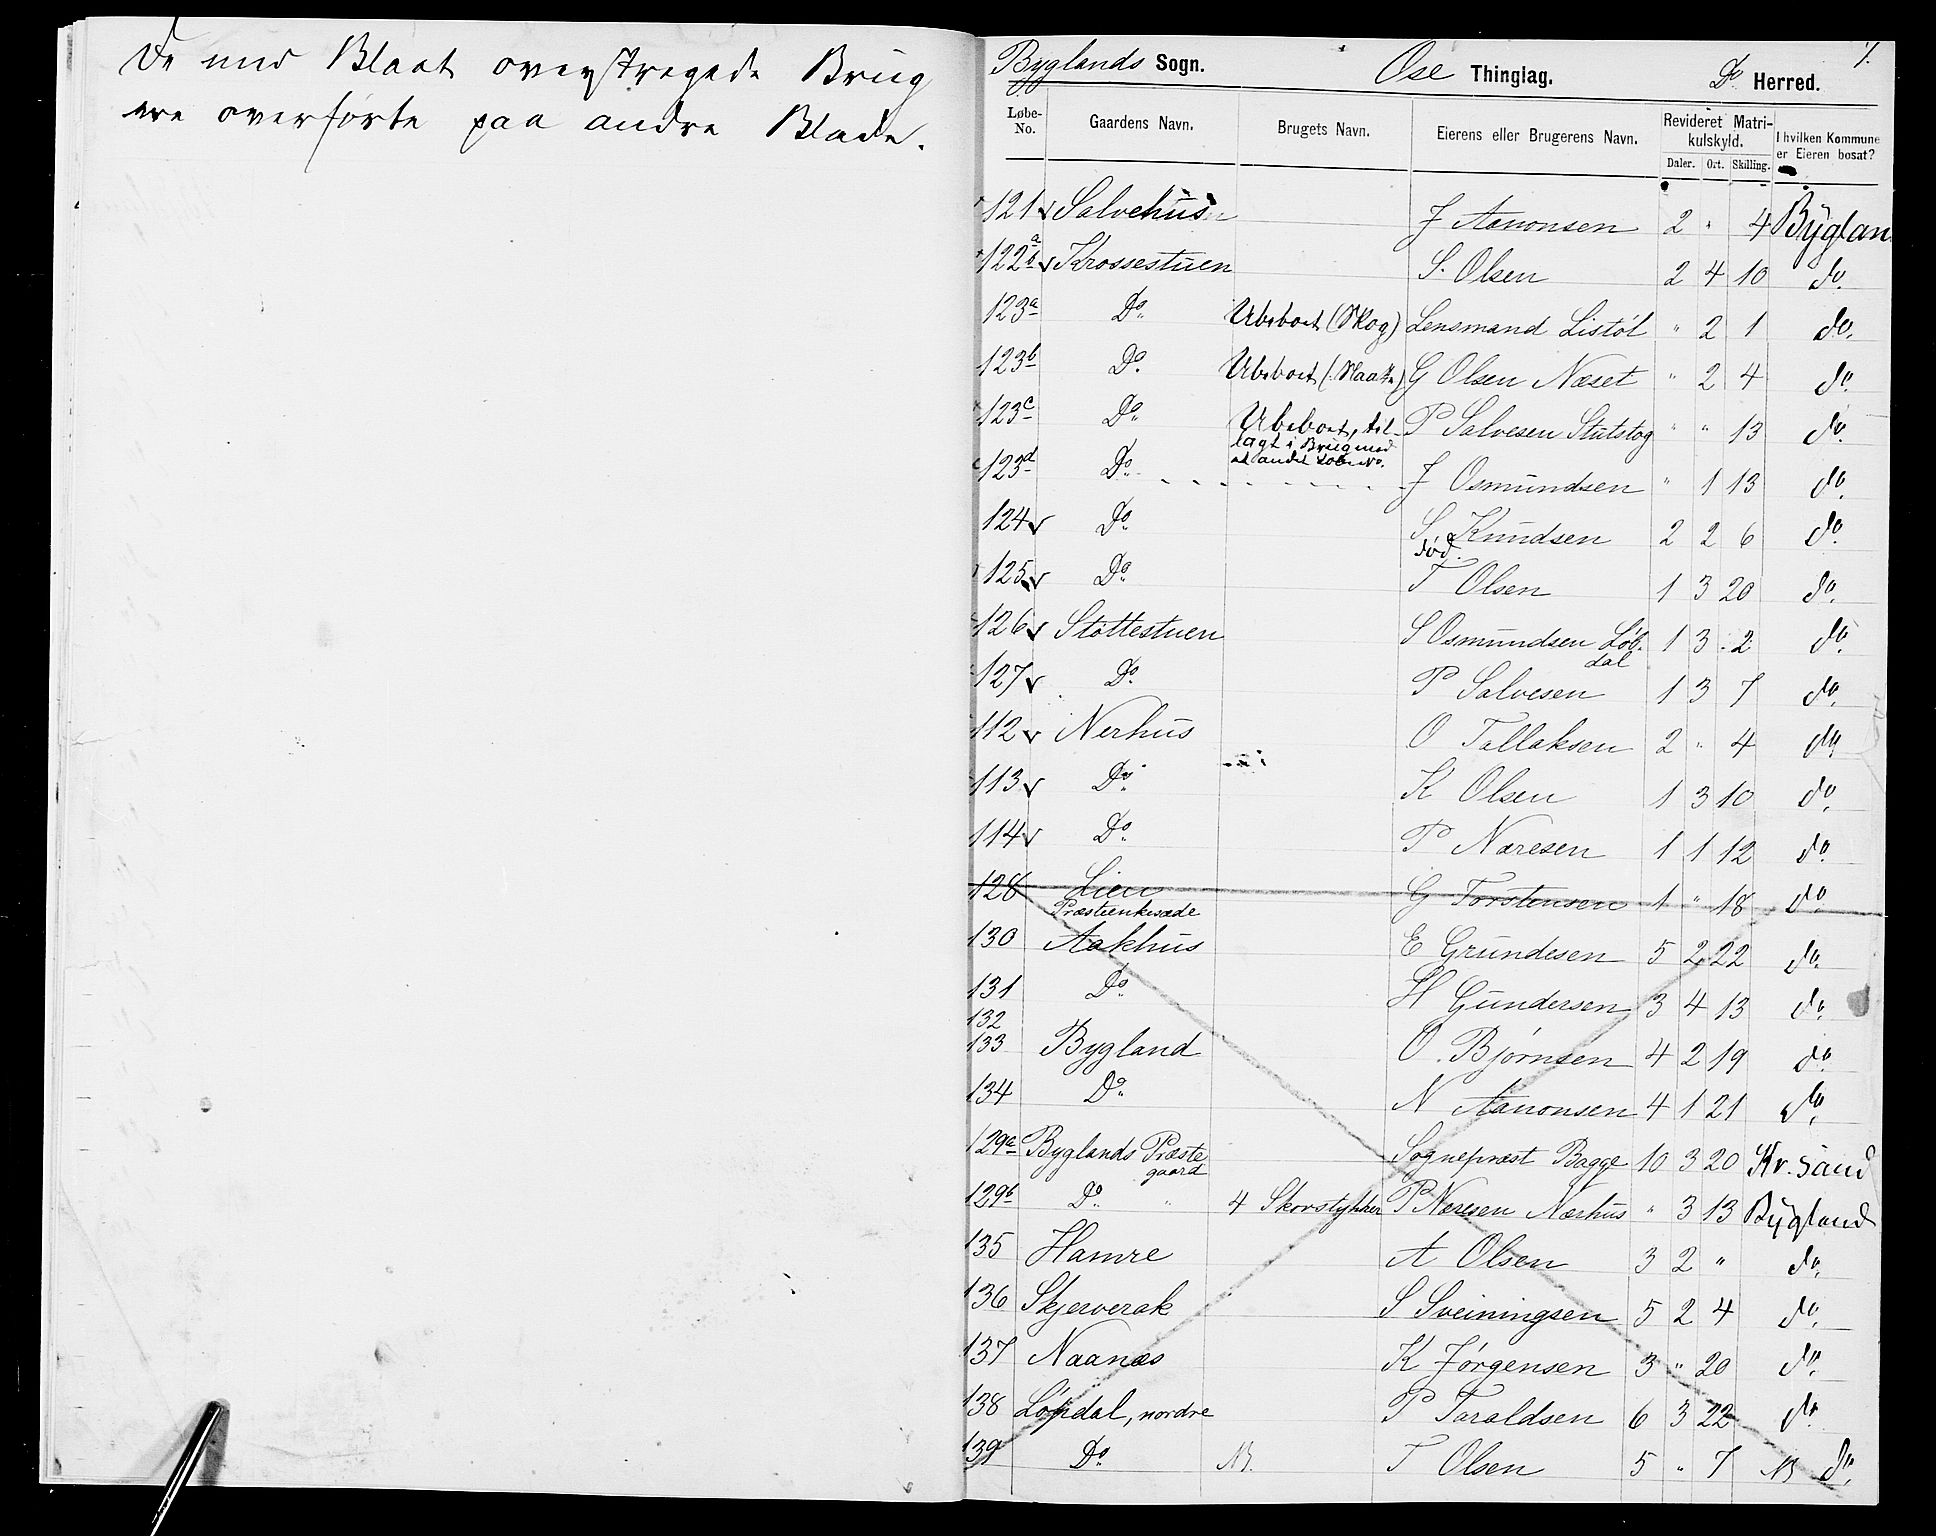 De med Blaat overstregede Brug
ere overførte paa andre Blade.
Byglands Sogn. Ose Thinglag. Do Herred. 1.
Løbe-No. Gaardens Navn. Brugets Navn. Eierens eller Brugerens Navn. Revideret Matrikulskyld. Daler. Ort. Skilling. I hvilken Kommune er Eieren bosat?
121 Salvehus J Aanonsen 2 " 4 Bygland
122 a b Krossestuen S. Olsen 2 4 10 do.
123a Do. Ubeboet (Skog) Lensmand Listøl " 2 1 do.
123b Do. Ubeboet (Slaatte) G Olsen Næset " 2 4 do.
123c Do. Ubeboet, tillagt i Brug med et andet Løbe No. P Salvesen Stutstog " " 13 do.
123d Do. J Osmundsen " 1 13 do.
124 Do. S Knudsen 2 2 6 do.
død.
125 Do. T Olsen 1 3 20 do.
126 Støttestuen S Osmundsen Løbdal 1 3 2 do.
127 Do. P Salvesen 1 3 7 do.
112 Nerhus O Tallaksen 2 " 4 do.
113 Do. K Olsen 1 3 10 do.
114 Do. P Næresen 1 1 12 do.
128 Lien G Torstensen 1 " 18 do.
Præsteenkesæde
130 Aakhus E Grundesen 5 2 22 do.
131 Do. H Gundersen 3 4 13 do.
132
133 Bygland O. Bjørnsen 4 2 19 do.
134 Do. N Aanonsen 4 1 21 do.
129a Byglands Præstegaard Sognepræst Bagge 10 3 20 Kr.sand
129b Do. " 4 Skovstykker P Næresen Nærhus " 3 13 Bygland
135 Hamre A Olsen 3 2 " do.
136 Skjerverak S Sveiningsen 5 2 4 do.
137 Naanæs K Jørgensen 3 " 20 do.
138 Løpdal, nordre P Taraldsen 6 3 22 do.
139 Do. N. T Olsen 5 " 7 do.